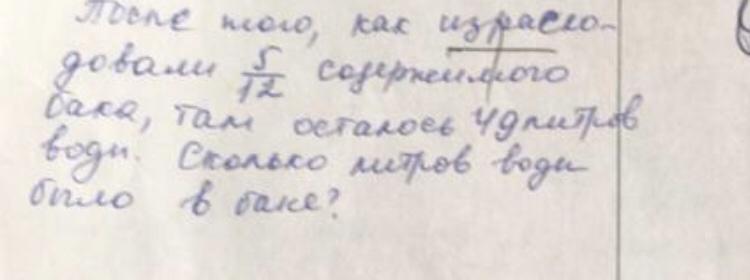 После того, как израсхо-
довали 5/12 содержимого
бака, там осталось 49 литров
воды. Сколько литров воды
было в баке?